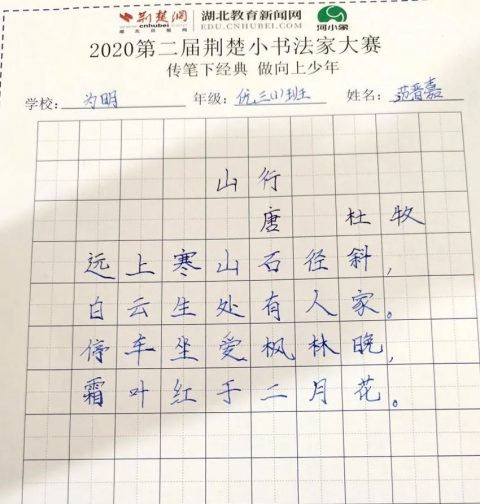 荆楚网 湖北教育新闻网 河小象
cnhubei EDU.CNHUBEI.COM
2020第二届荆楚小书法家大赛
传笔下经典 做向上少年
学校: 为明 年级: 优三(1)班 姓名: 范晋嘉
山行
唐 杜牧
远上寒山石径斜,
白云生处有人家。
停车坐爱枫林晚,
霜叶红于二月花。